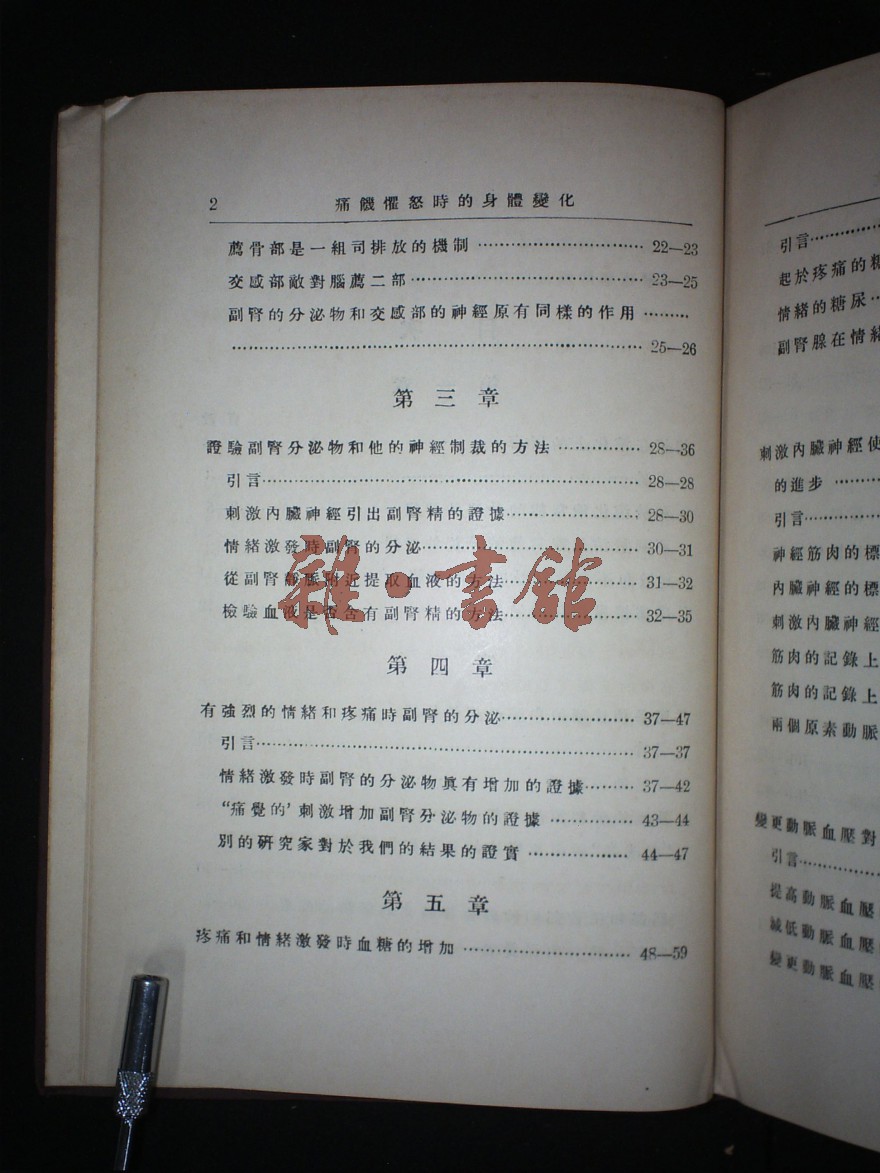 2 痛饑懼怒時的身體變化
薦骨部是一組司排放的機制 ························ 22—23
交感部敵對腦薦二部································· 23—25
副腎的分泌物和交感部的神經原有同樣的作用 ·········
·························································· 25—26
第三章
證驗副腎分泌物和他的神經制裁的方法 ················ 28—36
引言······················································ 28—28
刺激內臟神經引出副腎精的證據··················· 28—30
情緒激發時副腎的分泌······························· 30—31
從副腎靜脈附近提取血液的方法···················· 31—32
檢驗血液是否含有副腎精的方法···················· 32—35
第四章
有強烈的情緒和疼痛時副腎的分泌··················· 37—47
引言······················································ 37—37
情緒激發時副腎的分泌物眞有增加的證據········· 37—42
“痛覺的’刺激增加副腎分泌物的證據 ·············· 43—44
別的研究家對於我們的結果的證實 ················· 44—47
第五章
疼痛和情緒激發時血糖的增加 ························ 48—59
雜·書館
引言··················
起於疼痛的糖
情緒的糖尿··
副腎腺在情緒
刺激內臟神經使
的進步 ···········
引言··················
神經筋肉的標
內臟神經的標
刺激內臟神經
筋肉的記錄上
筋肉的記錄上
兩個原素動脈
變更動脈血壓對
引言··················
提高動脈血壓
減低動脈血壓
變更動脈血壓